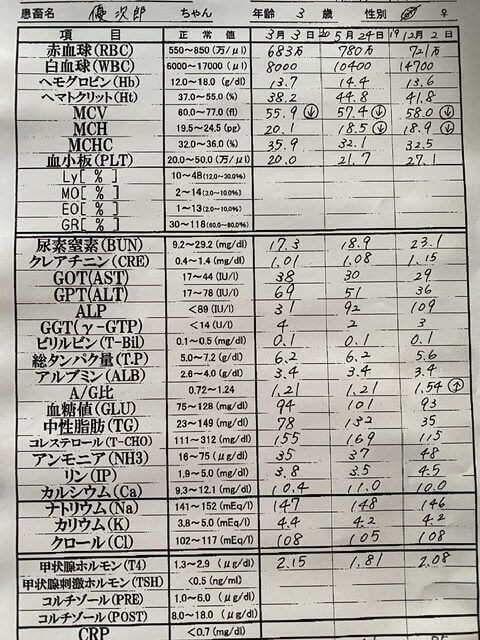 患畜名 優次郎 ちゃん 年齢 3 歳 性別 ♂ ♀
項 目 正 常 値 3月3日 20 5月24日 19 12月2日
赤血球(RBC) 550~850(万/μl) 683万 780万 721万
白血球(WBC) 6000~17000(/μl) 8000 10400 14700
ヘモグロビン(Hb) 12.0~18.0(g/dl) 13.7 14.4 13.6
ヘマトクリット(Ht) 37.0~55.0(%) 38.2 44.8 41.8
MCV 60.0~77.0(fl) 55.9↓ 57.4↓ 58.0↓
MCH 19.5~24.5(pg) 20.1 18.5↓ 18.9↓
MCHC 32.0~36.0(%) 35.9 32.1 32.5
血小板(PLT) 20.0~50.0(万/μl) 20.0 21.7 27.1
Ly[ % ] 10~48(12.0~30.0%)
MO[ % ] 2~14(3.0~10.0%)
EO[ % ] 1~13(2.0~10.0%)
GR[ % ] 30~118(60.0~80.0%)
尿素窒素(BUN) 9.2~29.2(mg/dl) 17.3 18.9 23.1
クレアチニン(CRE) 0.4~1.4(mg/dl) 1.01 1.08 1.15
GOT(AST) 17~44(IU/l) 38 30 29
GPT(ALT) 17~78(IU/l) 69 51 36
ALP <89(IU/l) 31 92 109
GGT(γ-GTP) <14(U/l) 4 2 3
ビリルビン(T-Bil) 0.1~0.5(mg/dl) 0.1 0.1 0.1
総タンパク量(T.P) 5.0~7.2(g/dl) 6.2 6.2 5.6
アルブミン(ALB) 2.6~4.0(g/dl) 3.4 3.4 3.4
A/G比 0.72~1.24 1.21 1.21 1.54↑
血糖値(GLU) 75~128(mg/dl) 94 101 93
中性脂肪(TG) 23~149(mg/dl) 78 132 35
コレステロール(T-CHO) 111~312(mg/dl) 155 169 115
アンモニア(NH3) 16~75(μg/dl) 35 37 48
リン(IP) 1.9~5.0(mg/dl) 3.8 3.5 4.5
カルシウム(Ca) 9.3~12.1(mg/dl) 10.4 11.0 10.0
ナトリウム(Na) 141~152(mEq/l) 147 148 146
カリウム(K) 3.8~5.0(mEq/l) 4.4 4.2 4.2
クロール(Cl) 102~117(mEq/l) 108 105 108
甲状腺ホルモン(T4) 1.3~2.9 (μg/dl) 2.15 1.81 2.08
甲状腺刺激ホルモン(TSH) <0.5(ng/ml)
コルチゾール(PRE) 1.0~6.0 (μg/dl)
コルチゾール(POST) 8.0~18.0 (μg/dl)
CRP <0.7(mg/dl)